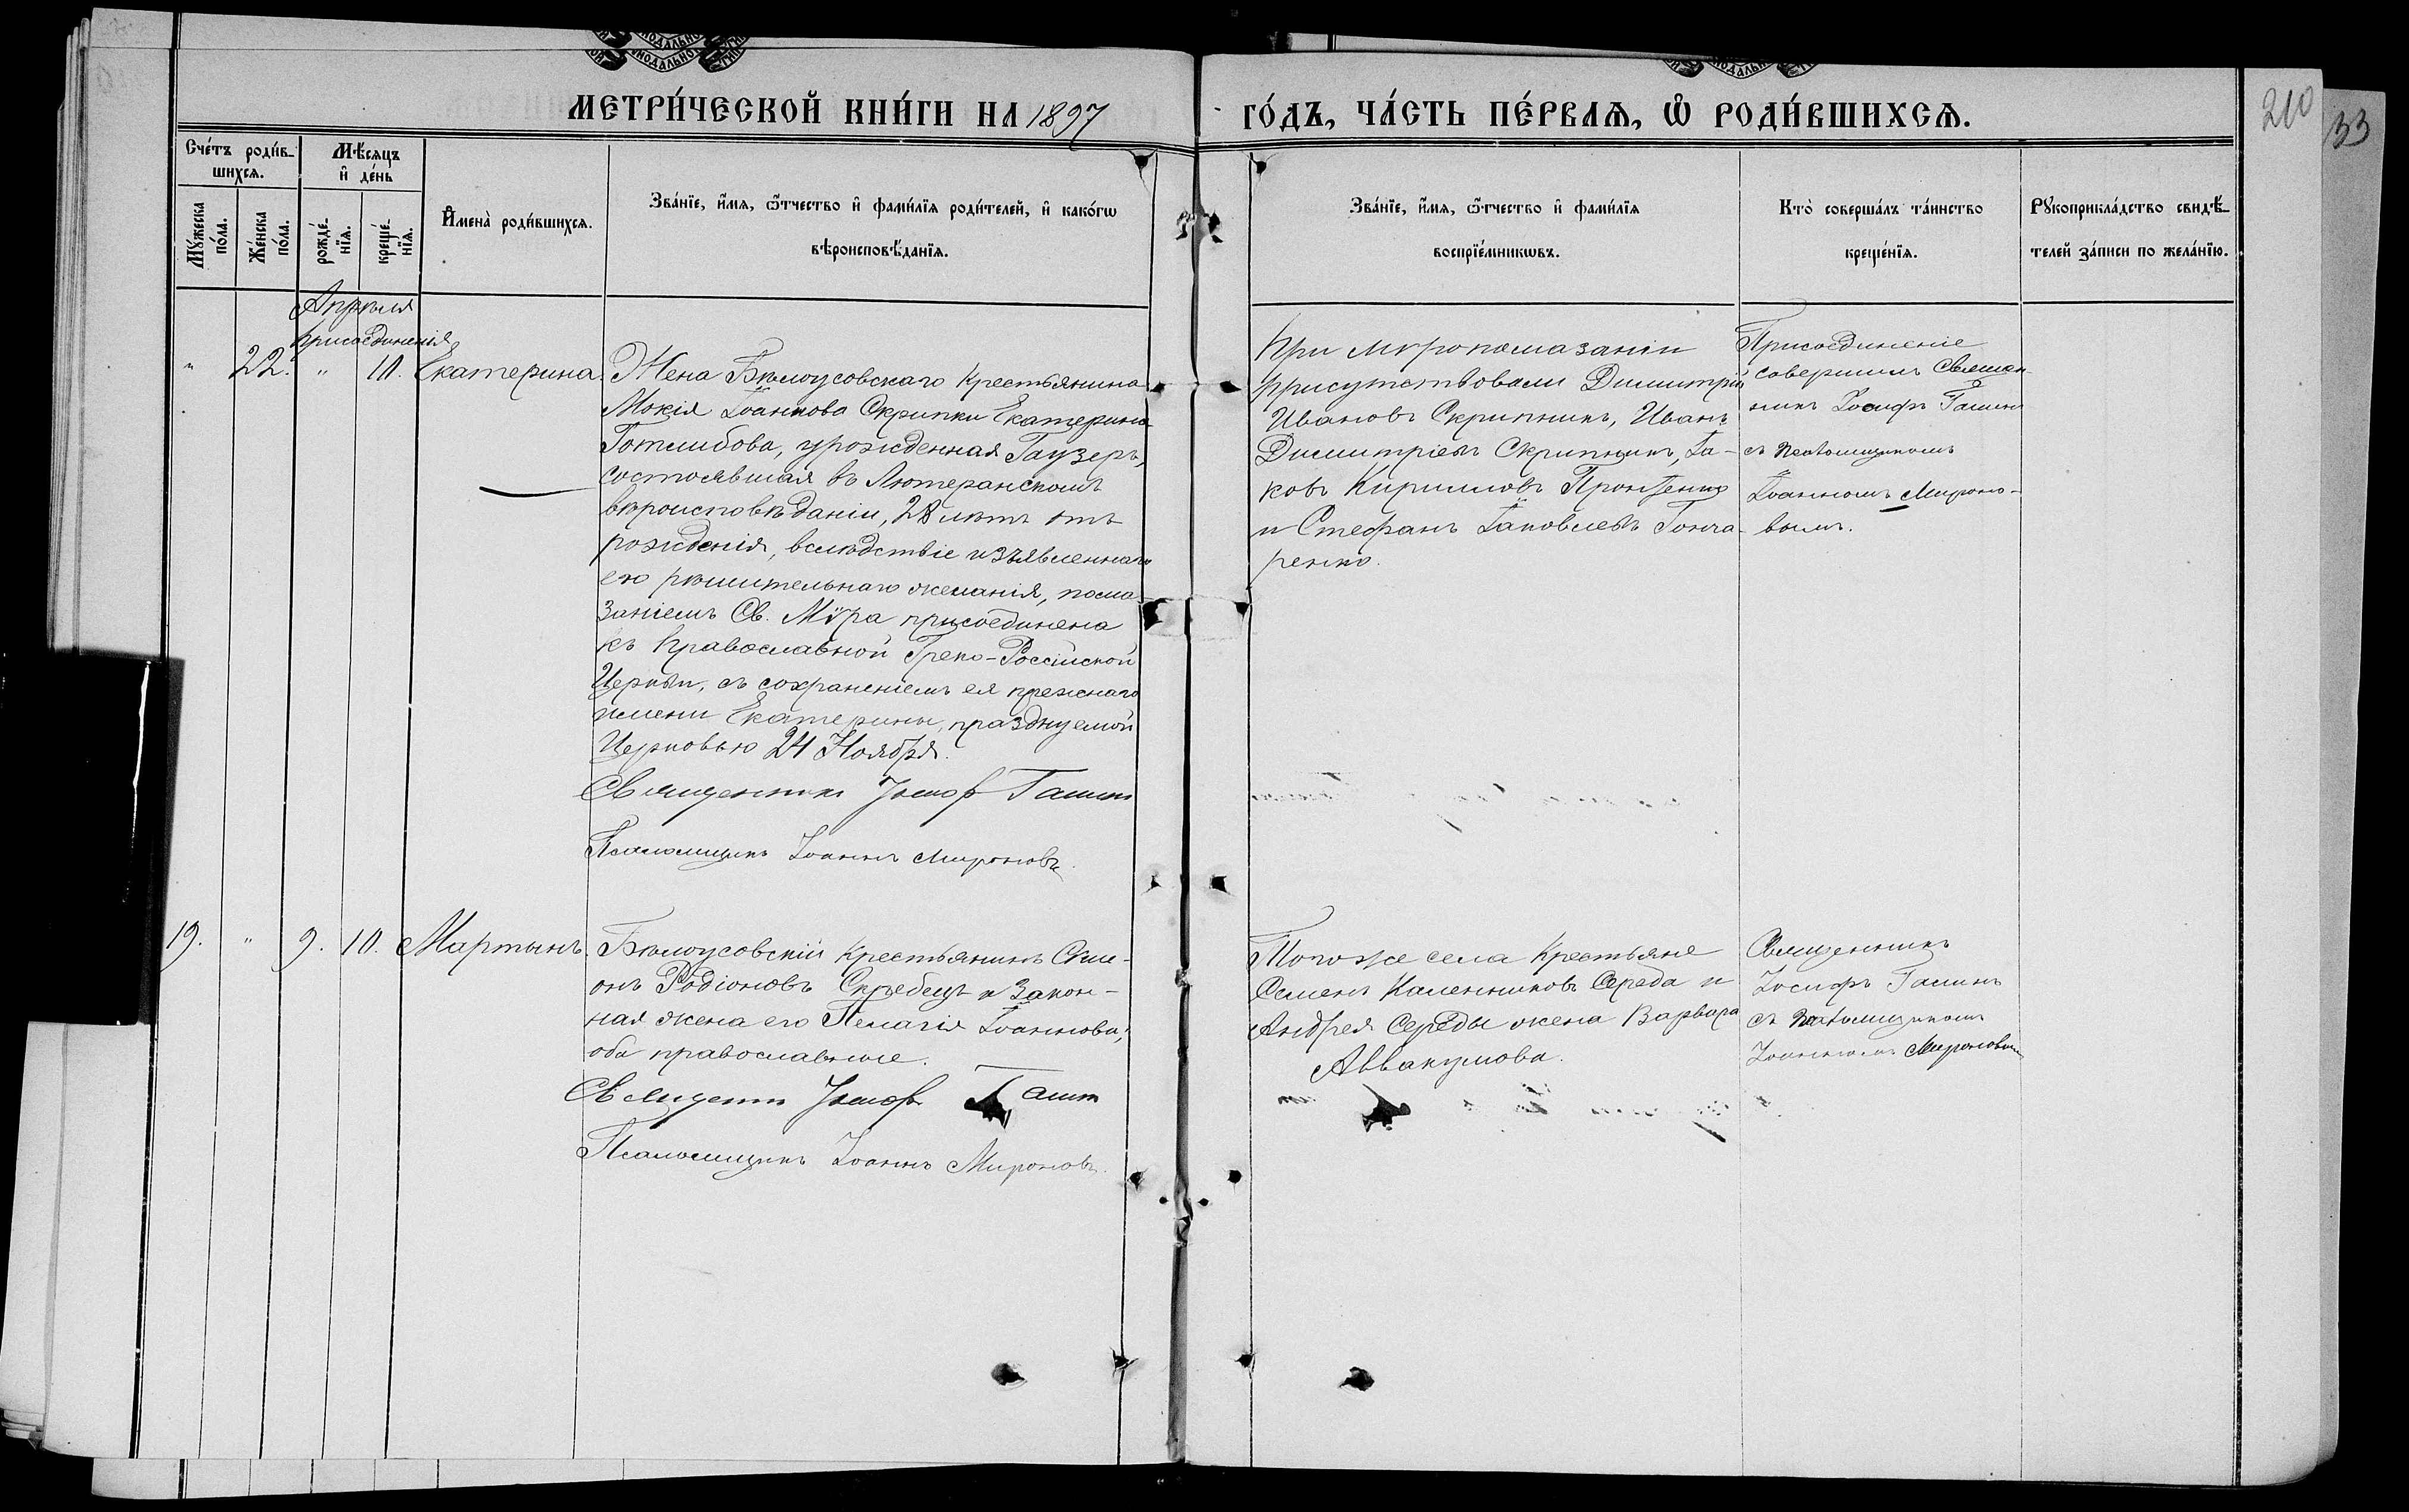 МЕТРИ́ЧЕСКОЙ КНИ́ГИ НА 1897
ГО́ДЪ, ЧА́СТЬ ПЕ́РВАѦ, Ѡ҆ РОДИ́ВШИХСѦ.
210
33
Сче́тъ роди́в-
шихсѧ.
Мѣ́сѧцъ
и҆ де́нь
Мꙋ́жеска
по́ла.
Же́нска
по́ла.
рожде́-
нїѧ.
креще́-
нїѧ.
И҆мена̀ роди́вшихсѧ.
Зва́нїе, и҆́мѧ, ѻ҆́тчество и҆ фами́лїѧ роди́телей, и҆ како́гѡ
вѣроисповѣ́данїѧ.
Зва́нїе, и҆́мѧ, ѻ҆́тчество и҆ фами́лїѧ
воспрїе́мникѡвъ.
Кто̀ соверша́лъ та́инство
креще́нїѧ.
Рꙋкоприкла́дство свидѣ́-
телей за́писи по жела́нїю.
Апрѣля
присоединенія
" 22. " 10. Екатерина.
Жена Бѣлоусовскаго крестьянина
Мокія Іоаннова Скрипки Екатерина
Готлибова, урожденная Гаузеръ,
состоявшая въ Лютеранскомъ
вѣроисповѣданіи, 28 лѣтъ отъ
рожденія, вслѣдствіе изъявленнаго
ею рѣшительнаго желанія, пома-
заніемъ Св. Мѵра присоединена
къ Православной Греко-Россійской
Церкви, съ сохраненіемъ ея прежняго
имени Екатерины, празднуемой
Церковью 24 Ноября.
Священникъ Іосиф
Псаломщикъ Іоаннъ Мироновъ.
При мѵропомазаніи
присутствовали Димитрій
Ивановъ Скрипникъ, Иванъ
Димитріевъ Скрипникъ, Іа-
ковъ Кирилловъ
и Стефанъ Іаковлевъ Гонча-
ренко.
Присоединеніе
совершилъ Священ-
никъ Іосифъ
съ псаломщикомъ
Іоанномъ Мироно-
вымъ.
19. " 9. 10. Мартынъ
Бѣлоусовскій крестьянинъ Сѵме-
онъ Родіоновъ Скребецъ и закон-
ная жена его Пелагія Іоаннова,
оба православные.
Священник Іосиф
Псаломщикъ Іоаннъ Мироновъ.
Того же села крестьяне
Семенъ Каленниковъ Середа и
Андрея Середы жена Варвара
Аввакумова.
Священникъ
Іосифъ
съ псаломщикомъ
Іоанномъ Мироновым